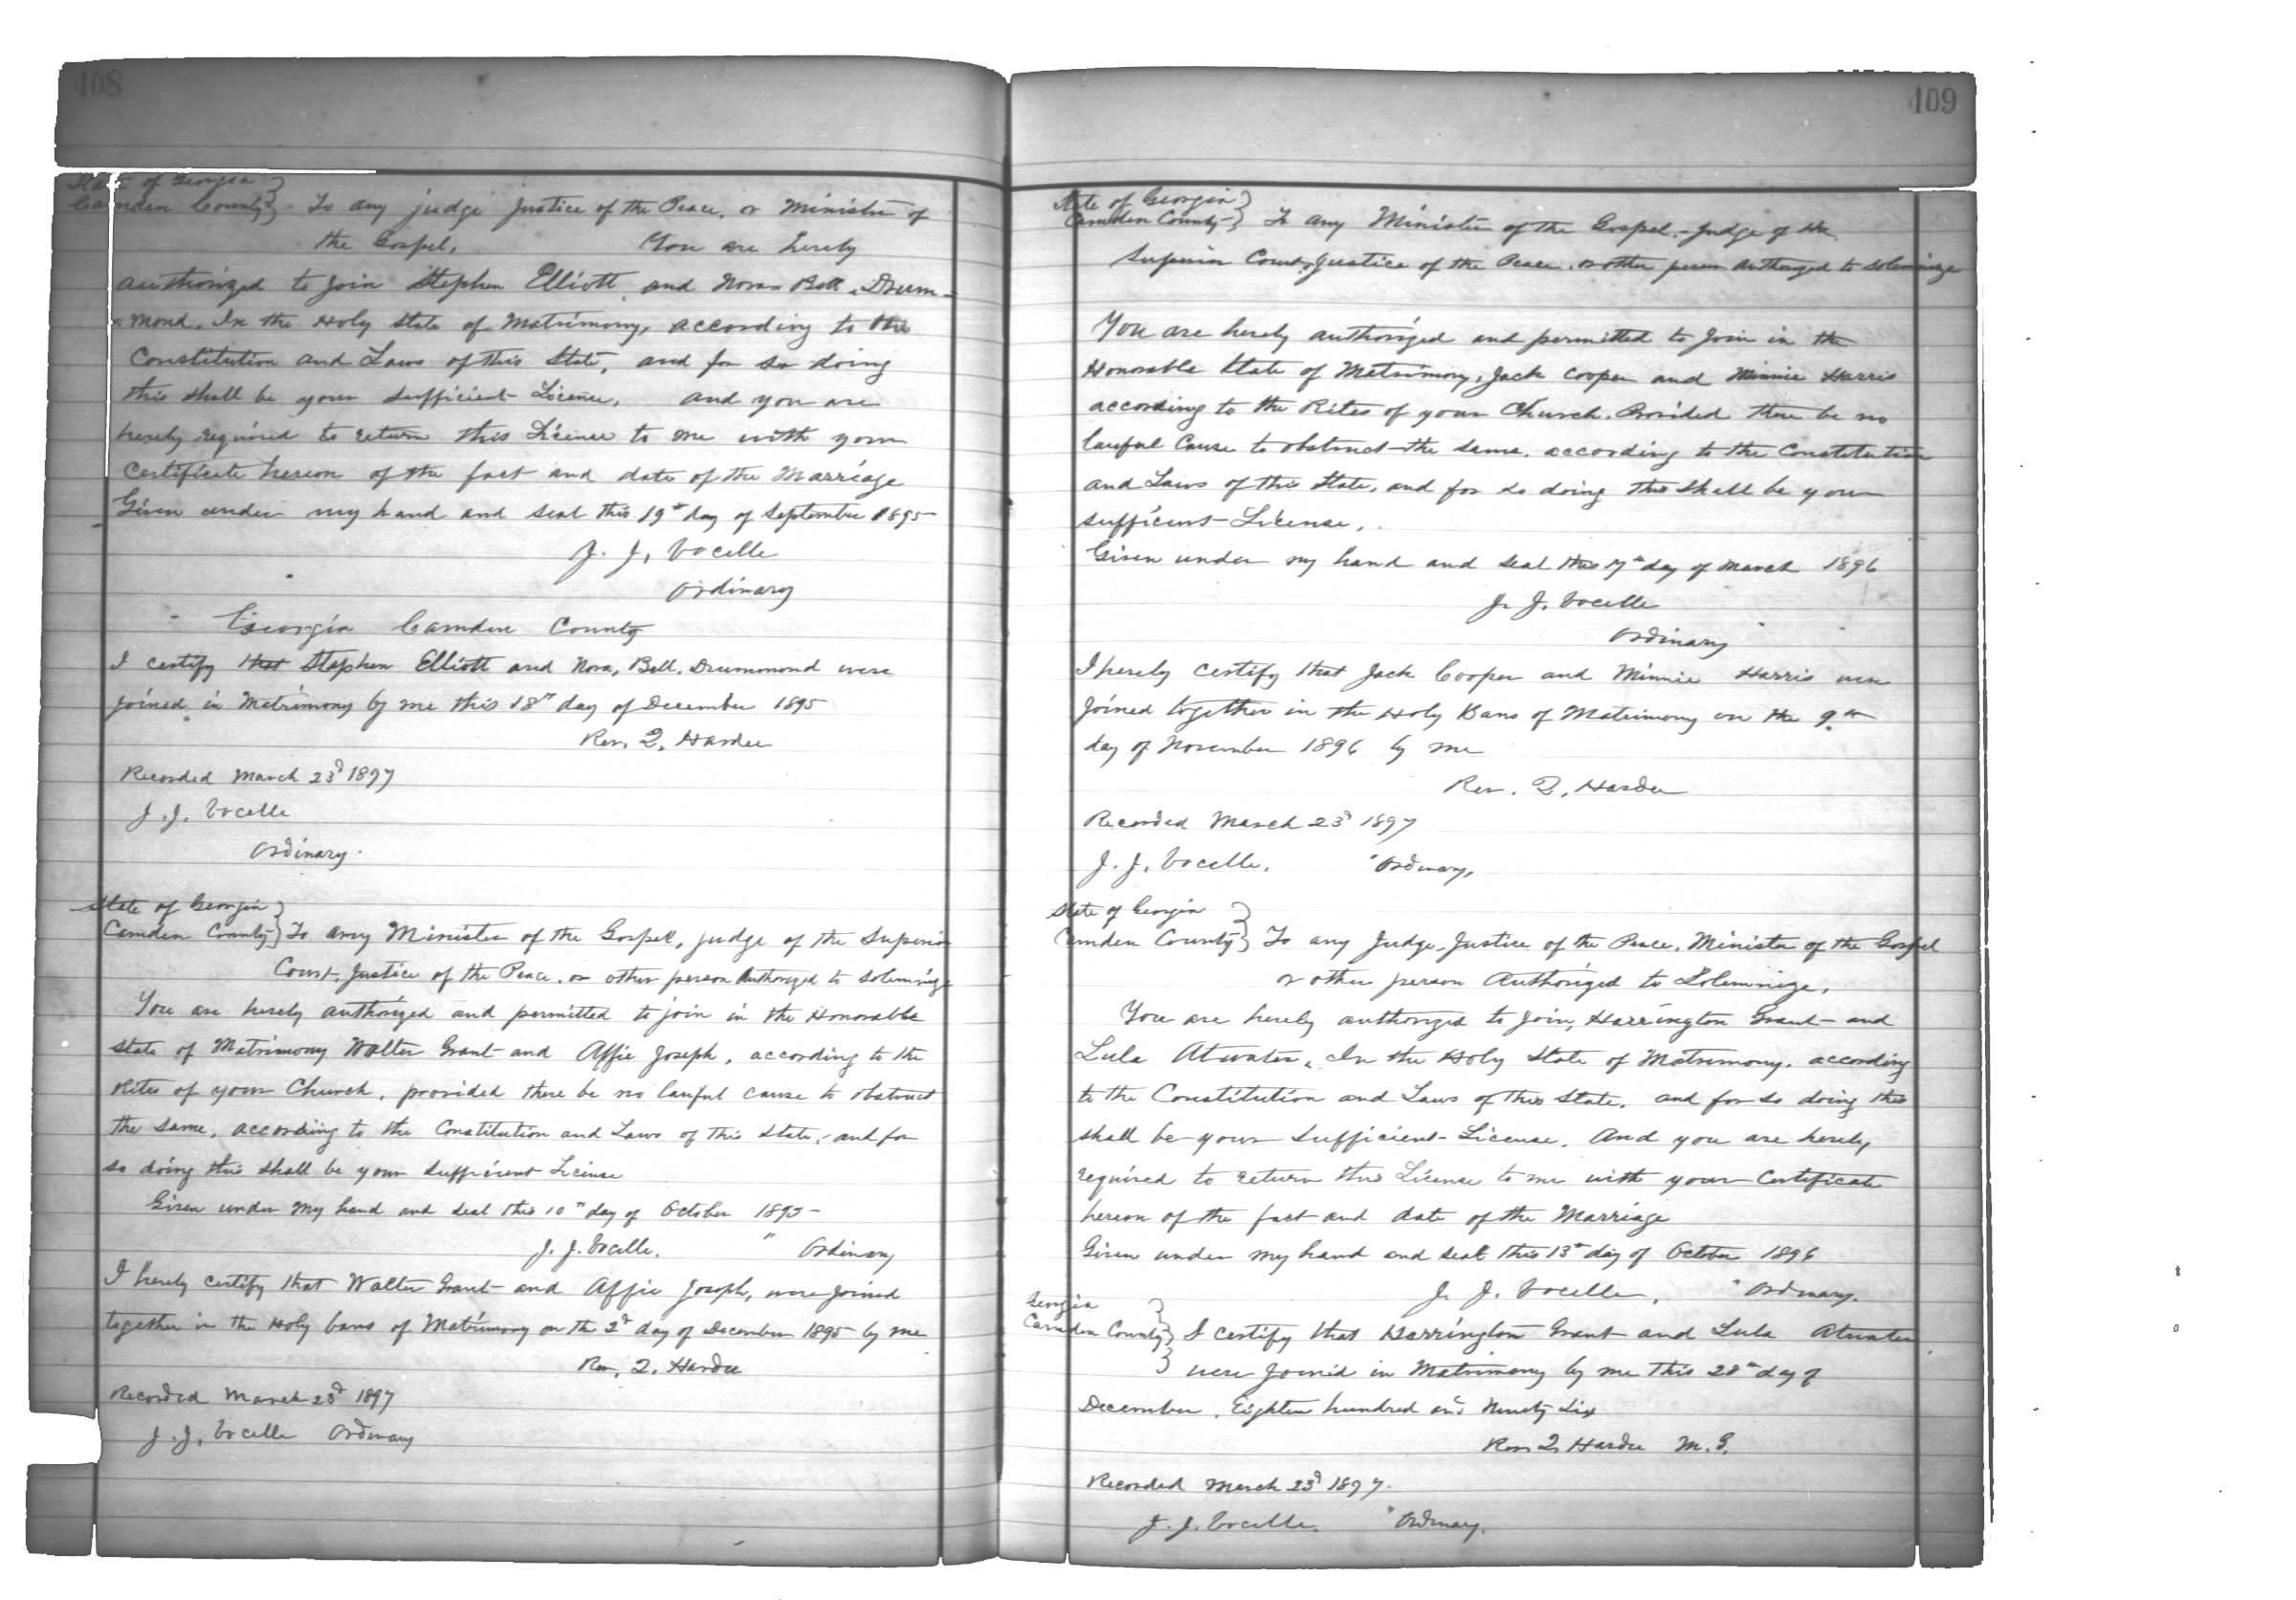 408
State of Georgia }
Camden County } To any judge Justice of the Peace, or Minister of
the Gospel, You are hereby
authorized to join Stephen Elliott and Nora Bell Drum-
mond, In the Holy State of Matrimony, according to the
Constitution and Laws of this State, and for so doing
this shall be your sufficient License, and you are
hereby required to return this License to me with your
Certificate hereon of the fact and date of the Marriage
Given under my hand and seal this 19th day of September 1895
J. J. Vocelle
Ordinary
Georgia Camden County
I certify that Stephen Elliott and Nora, Bell, Drummond were
joined in Matrimony by me this 18th day of December 1895
Rev. Q. Hardee
Recorded March 23d 1897
J. J. Vocelle
Ordinary.
State of Georgia }
Camden County } To any Minister of the Gospel, judge of the Superior
Court, Justice of the Peace, or other person Authorized to solemnize
You are hereby authorized and permitted to join in the Honorable
state of Matrimony Walter Grant and Affie Joseph, according to the
Rites of your Church, provided there be no lawful cause to obstruct
the same, according to the Constitution and Laws of this State, and for
so doing this shall be your sufficient License
Given under my hand and seal this 10th day of October 1895
J. J. Vocelle. " Ordinary
I hereby certify that Walter Grant and Affie Joseph, were joined
together in the Holy bans of Matrimony on the 2d day of December 1895 by me
Rev. Q. Hardee
Recorded March 23d 1897
J. J. Vocelle Ordinary
409
State of Georgia }
Camden County } To any Minister of the Gospel, Judge of the
Superior Court, Justice of the Peace, or other person authorized to solemnize
You are hereby authorized and permitted to join in the
Honorable State of Matrimony, Jack Cooper and Minnie Harris
according to the Rites of your Church. Provided there be no
lawful Cause to obstruct the same, according to the Constitution
and Laws of this State, and for so doing this shall be your
sufficient License,
Given under my hand and seal this 17th day of March 1896
J. J. Vocelle
Ordinary
I hereby certify that Jack Cooper and Minnie Harris were
joined together in the Holy Bans of Matrimony on the 9th
day of November 1896 by me
Rev. Q. Hardee
Recorded March 23d 1897
J. J. Vocelle. " Ordinary,
State of Georgia }
Camden County } To any Judge, Justice of the Peace, Minister of the Gospel
or other person Authorized to Solemnize,
You are hereby authorized to join, Harrington Grant and
Lula Atwater, In the Holy State of Matrimony, according
to the Constitution and Laws of this State, and for so doing this
shall be your Sufficient License, And you are hereby
required to return this License to me with your Certificate
hereon of the fact and date of the Marriage
Given under my hand and seal this 13th day of October 1896
J. J. Vocelle, " Ordinary.
Georgia }
Camden County } I certify that Harrington Grant and Lula Atwater
were joined in Matrimony by me This 28th day of
December, Eighteen hundred and Ninety Six
Rev Q. Hardee M. G.
Recorded March 23d 1897.
J. J. Vocelle. " Ordinary.